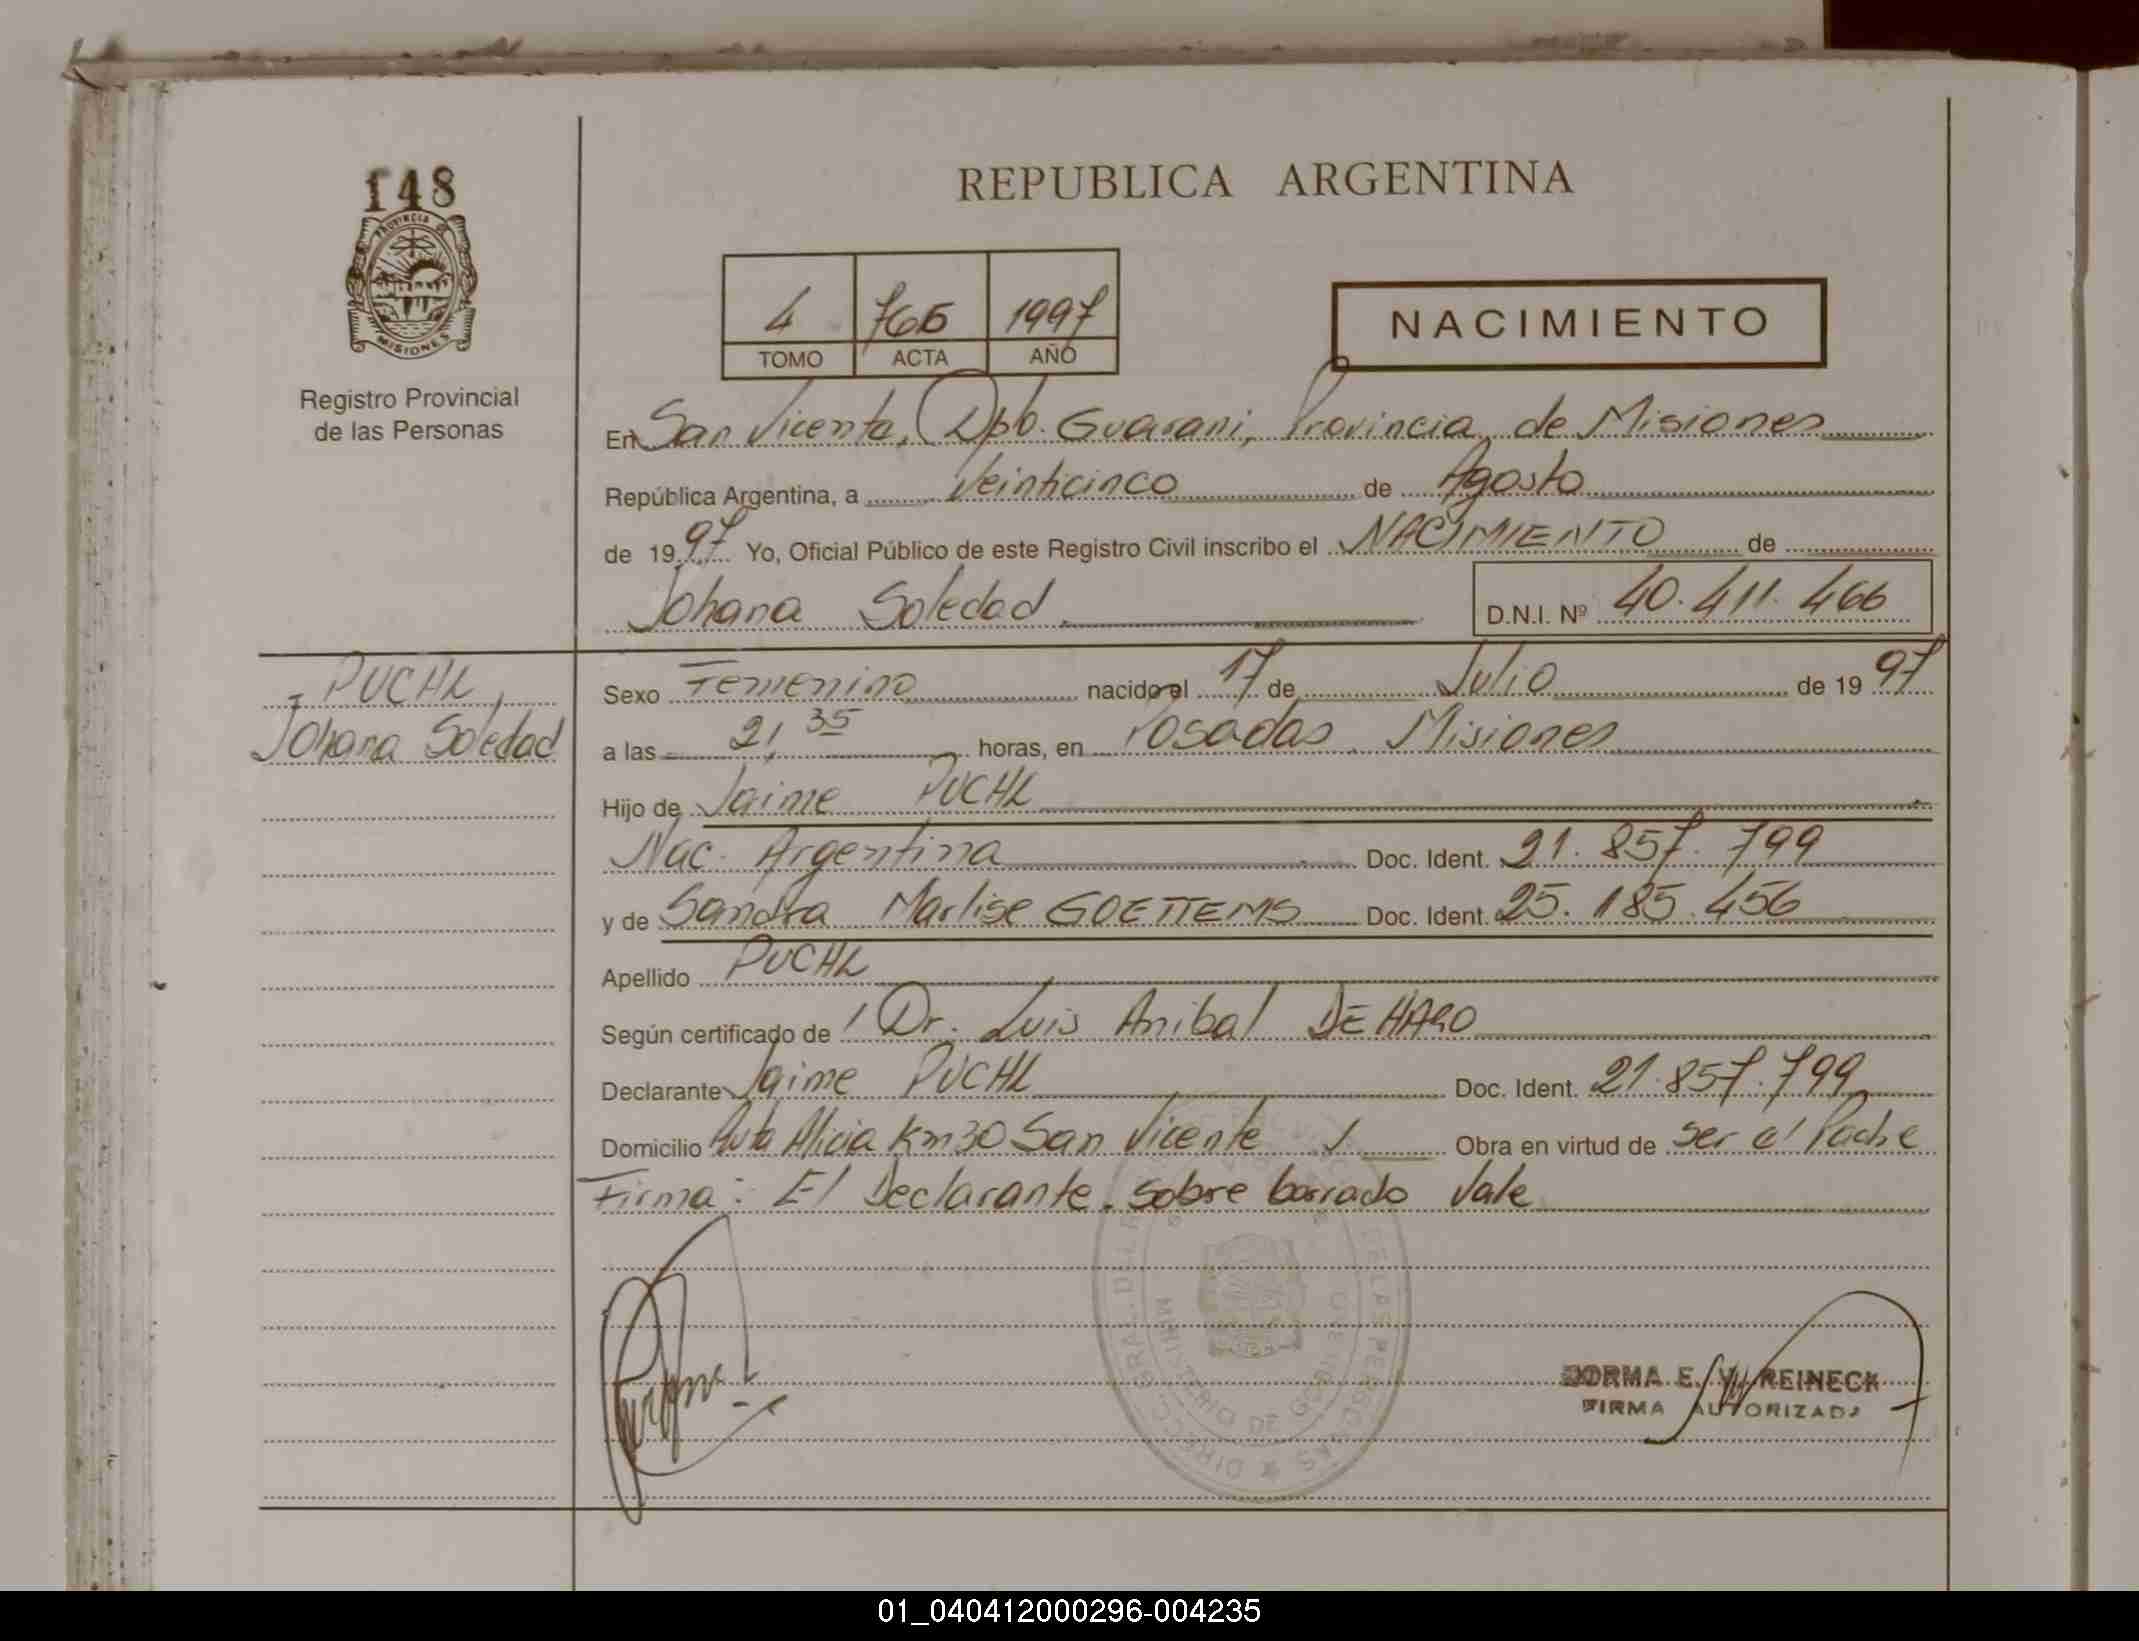 148
PROVINCIA
MISIONES
Registro Provincial
de las Personas
REPUBLICA ARGENTINA
4 1997
TOMO ACTA AÑO
NACIMIENTO
En San Vicente, Dpto. Guarani, Provincia de Misiones
República Argentina, a Veinticinco de Agosto
de 1997 Yo, Oficial Público de este Registro Civil inscribo el NACIMIENTO de
Johana Soledad D.N.I. Nº 40.411.466
PUCHL
Johana Soledad
Sexo Femenino nacido el 17 de Julio de 1997
a las 21,35 horas, en Posadas Misiones
Hijo de Jaime PUCHL
Nac. Argentina Doc. Ident. 21.857.799
y de Sandra Marlise GOETTEMS Doc. Ident. 25.185.456
Apellido PUCHL
Según certificado de Dr. Luis Anibal DE HARO
Declarante Jaime PUCHL Doc. Ident. 21.857.799
Domicilio Ruta Alicia Km30 San Vicente Obra en virtud de ser el Padre
Firma: El Declarante. Sobre borrado Vale
MINISTERIO DE GOBIERNO
E. REINECK
FIRMA AUTORIZADA
01_040412000296-004235